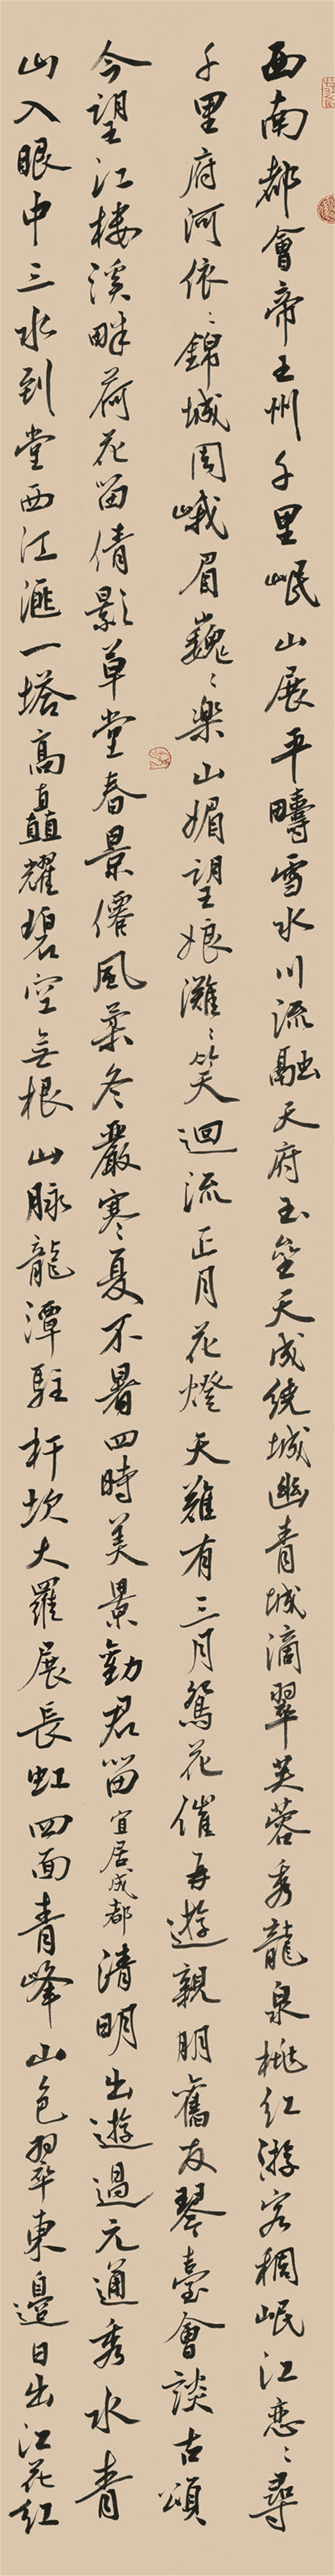 西南都會帝王州千里岷山展平疇雪水川流融天府玉壘天成繞城幽青城滴翠芙蓉秀龍泉桃紅游客稠岷江戀〻尋
千里府河依〻錦城周峨眉巍〻樂山媚望娘灘〻笑迴流正月花燈天難有三月鴛花催再遊親朋舊友琴臺會談古頌
今望江樓溪畔荷花留倩影草堂春景僊風葉冬嚴寒夏不暑四時美景勸君留宜居成都清明出遊過元通秀水青
山入眼中三水到堂西江滙一塔高矗耀碧空無根山脉龍潭駐杆坎大羅展長虹四面青峰山色翠東邊日出江花紅